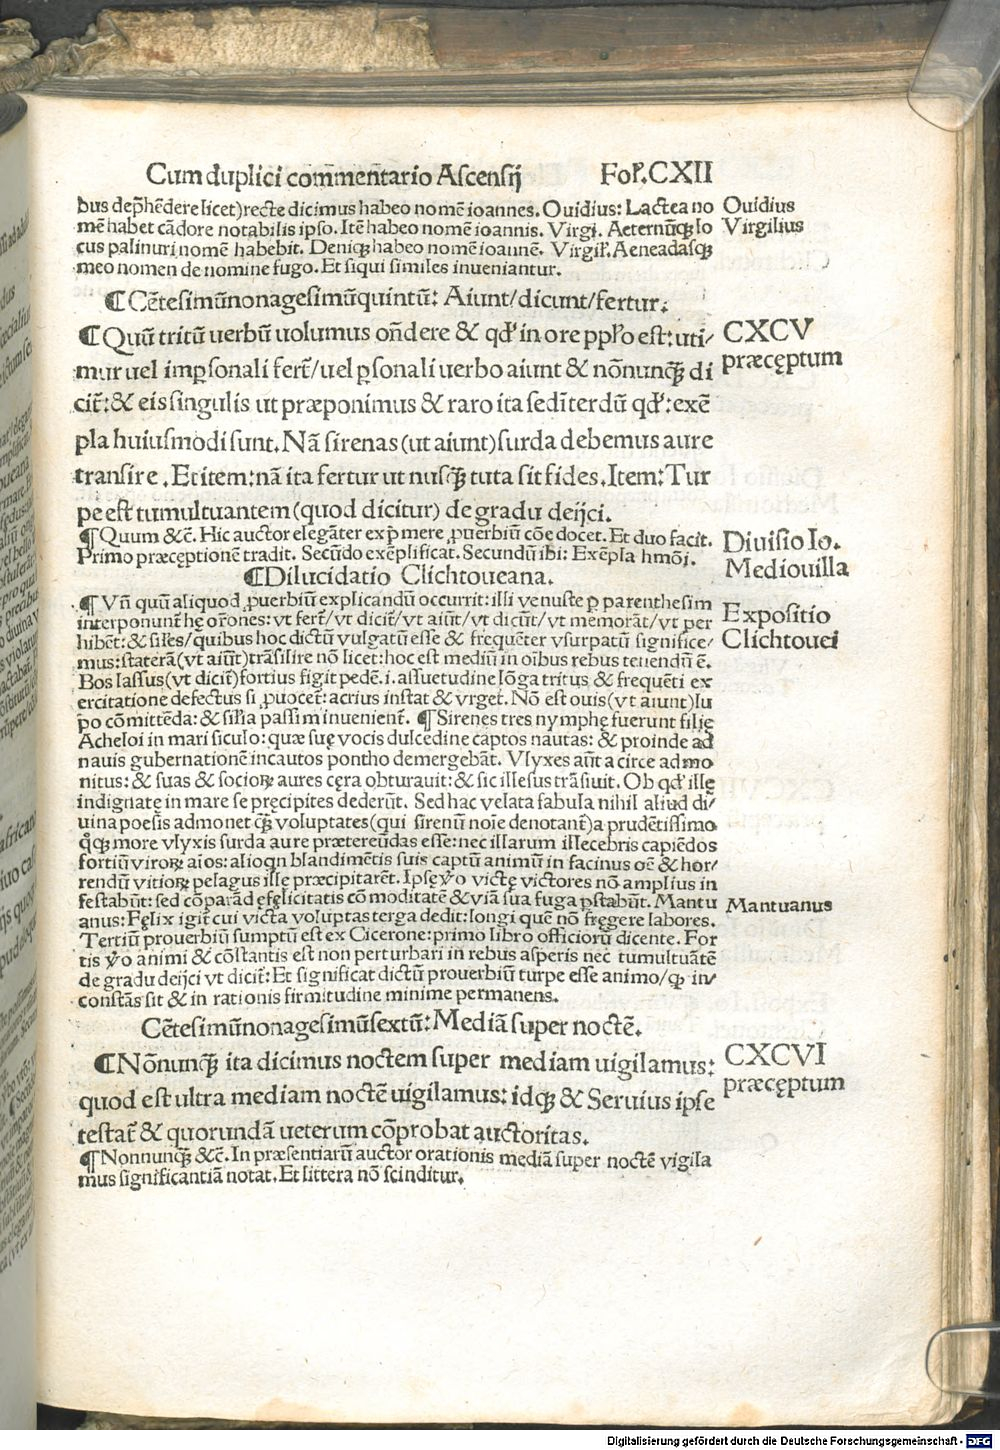 Cum duplici com̄men̄tario Ascensij Fol̕.CXII
bus dep̄hēdere licet)recte dicimus habeo nomē ioannes. Ouidius: Lactea no
Ouidius
mē habet cādore notabilis ipso. Itē habeo nomē ioannis. Virgi. Aeternūqꝫ lo
Virgilius
cus palinuri nomē habebit. Deniqꝫ habeo nomē ioannē. Virgil̕. Aeneadasqꝫ
meo nomen de nomine fugo. Et siqui similes inueniantur.
¶Cētesimūnonagesimūquintū: Aiunt/dicunt/fertur.
¶Quū tritū uerbū uolumus on̄dere & qd̕ in ore pp̄l̕o est: uti/
CXCV
mur uel imp̱sonali fert̄/uel p̱sonali uerbo aiunt & nōnunqꝫ̄ di
præcęptum
cit̄: & eis singulis ut præponimus & raro ita sed īterdū qd̕: exē
pla huiusmodi sunt. Nā sirenas (ut aiunt) surda debemus aure
transire. Et item: nā ita fertur ut nusqꝫ̄ tuta sit fides. Item: Tur
pe est tumultuantem (quod dicitur) de gradu deijci.
¶Quum &c̄. Hic auctor elegāter exp̄mere ꝓuerbiū cōe docet. Et duo facit.
Diuisio Io.
Primo præceptionē tradit. Secūdo exēplificat. Secundū ibi: Exēpla hmōi.
Mediouilla
¶Dilucidatio Clichtoueana.
¶Vn̄ quū aliquod ꝓuerbiū explicandū occurrit: illi venuste p̱ parenthesim
Expositio
interponunt̄ hę or̄ones: vt fert̄/vt dicit̄/vt aiūt/vt dicūt/vt memorāt/vt per
Clichtouei
hibēt: & sil̕es/quibus hoc dictū vulgatū esse & frequēter vsurpatū significe/
mus: staterā(vt aiūt)trāsilire nō licet: hoc est mediū in oībus rebus tenendū ē.
Bos lassus (vt dicit̄) fortius figit pedē.i. assuetudine lōga tritus & frequēti ex
ercitatione defectus si ꝓuocet̄: acrius instat & vrget. Nō est ouis (vt aiunt) lu
po cōmittēda: & sil̕ia passim inuenient̄. ¶Sirenes tres nymphę fuerunt filię
Acheloi in mari siculo: quæ suę vocis dulcedine captos nautas: & proinde ad
nauis gubernationē incautos pontho demergebāt. Vlyxes aūt a circe admo
nitus: & suas & socioꝝ aures cęra obturauit: & sic illesus trāsiuit. Ob qd̕ illę
indignatę in mare se pręcipites dederūt. Sed hac velata fabula nihil aliud di/
uina poesis admonet qꝫ̄ voluptates (qui sirenū noīe denotant̄) a prudētissimo
q̊qꝫ more vlyxis surda aure prætereūdas esse: nec illarum illecebris capiēdos
fortiū viroꝝ aīos: alioqn blandimētis suis captū animū in facinus oē & hor/
rendū vitioꝝ pelagus ille præcipitarēt. Ipsę ꝟo victę victores nō amplius in
festabūt: sed cōparād ęfęlicitatis cōmoditatē & viā sua fuga pstabūt. Mantu
Mantuanus
anus: Fęlix igit̄ cui victa voluptas terga dedit: longi quē nō fręgere labores.
Tertiū prouerbiū sumptū est ex Cicerone: primo libro officiorū dicente. For
tis ꝟo animi & cōstantis est non perturbari in rebus asperis nec tumultuātē
de gradu deijci vt dicit̄: Et significat dictū prouerbiū turpe esse animo/qꝫ in/
constās sit & in rationis firmitudine minime permanens.
Cētesimūnonagesimūsextū: Mediā super noctē.
¶Nōnunqꝫ̄ ita dicimus noctem super mediam uigilamus:
CXCVI
quod est ultra mediam noctē uigilamus: idqꝫ & Seruius ipse
præcęptum
testat̄ & quorundā ueterum cōprobat auctoritas.
¶Nonnunqꝫ̄ &c̄. In præsentiarū auctor orationis mediā super noctē vigila
mus significantiā notat. Et littera nō scinditur.
Digitalisierung gefördert durch die Deutsche Forschungsgemeinschaft - DFG